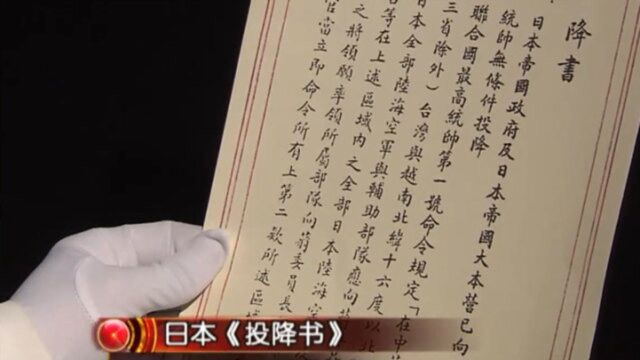 降書
日本帝國政府及日本帝國大本營已向
統帥無條件投降
聯合國最高統帥第一號命令規定「在中
三省除外）台灣與越南北緯十六度以北
本全部陸海空軍與輔助部隊應向蔣
等在上述區域內之全部日本陸海空
之將領願率領所屬部隊向蔣委員長
官當立即命令所有上第二款所述區
日本《投降书》